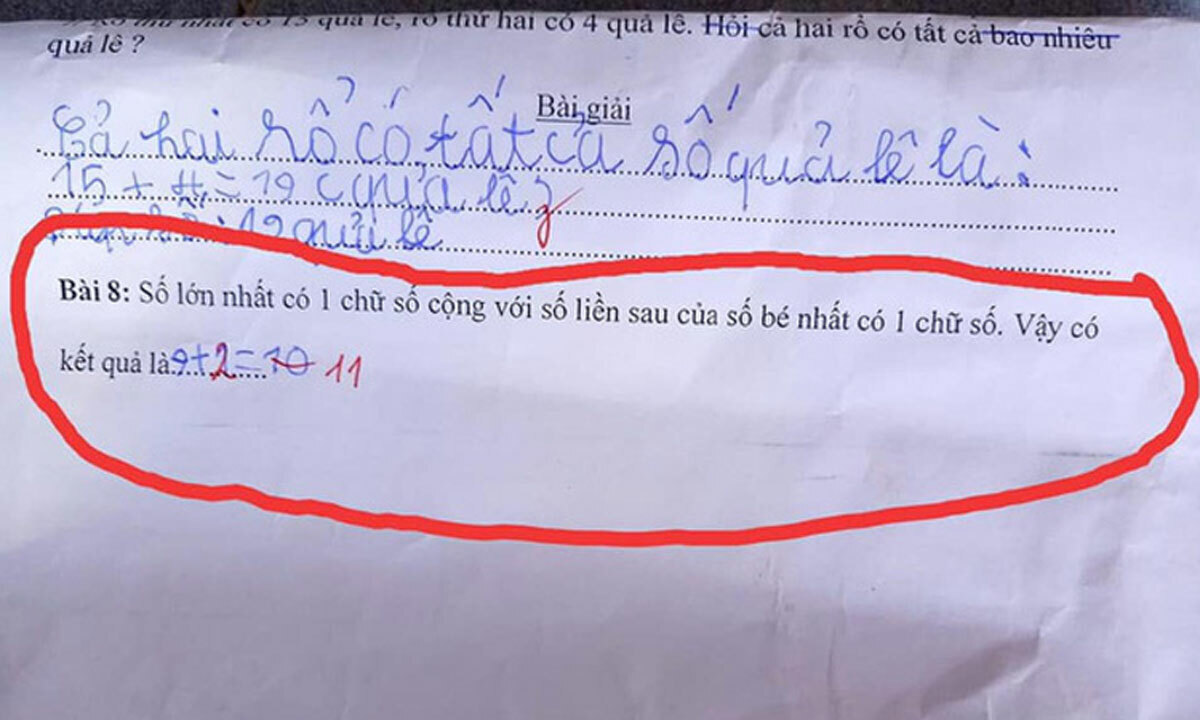 thứ nhất có 15 quả lê, rổ thứ hai có 4 quả lê. Hỏi cả hai rổ có tất cả bao nhiêu
quả lê ?
Bài giải
Cả hai rổ có tất cả số quả lê là:
15 + 4 = 19 (quả lê)
19 quả lê
Bài 8: Số lớn nhất có 1 chữ số cộng với số liền sau của số bé nhất có 1 chữ số. Vậy có
kết quả là 9+2=10 11